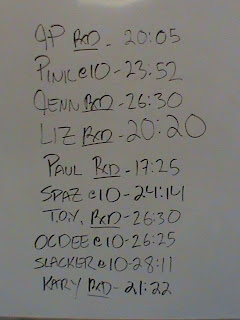 JP RXD - 20:05
PINK@10-23:52
JENN RXD-26:30
LIZ RXD-20:20
PAUL RXD-17:25
SPAZ@10-24:14
TOY. RXD-26:30
OCDEE@10-26:25
SLACKER@10-28:11
KARY RXD-21:22